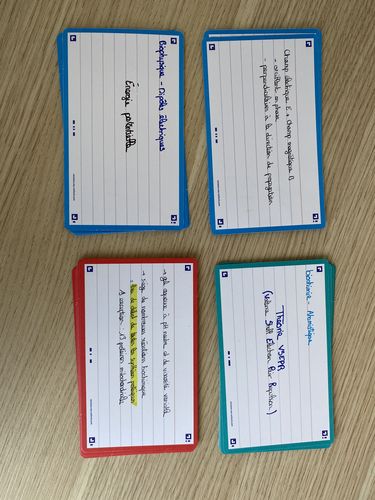 Biophysique - Dipôles électriques
Énergie potentielle
Champ électrique E + Champ magnétique B
- oscillent en phase
- perpendiculaires à la direction de propagation
→ gel aqueux à pH neutre et de viscosité variable
→ siège de nombreuses réactions biochimiques
A exception : 13 protéines mitochondriales
biochimie - Atomistique
Théorie VSEPR
(Valence Shell Electron Pair Repulsion)